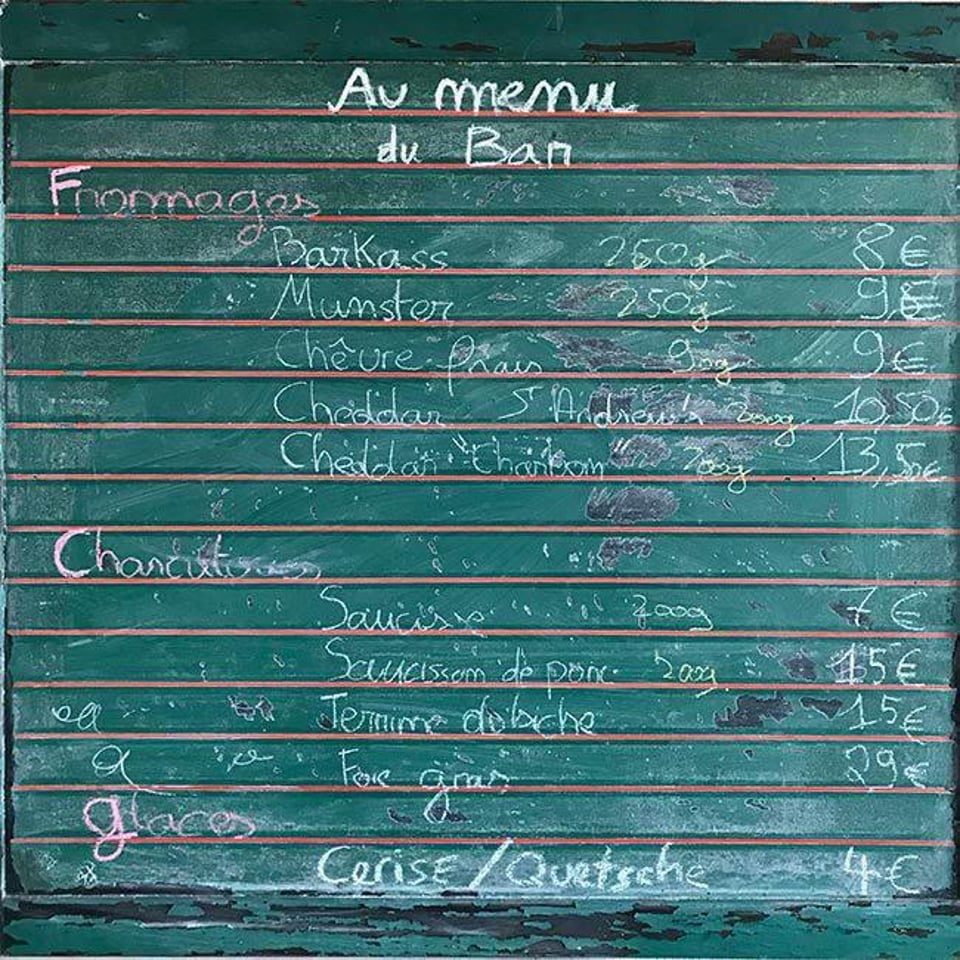 Au menu
du Bar
Fromages
Barkass 250g 8€
Munster 250g 9€
Chêvre frais 9€
Cheddar St Andrew's 200g 10,50€
Cheddar Charbon 200g 13,50€
Charcuteries
Saucisse 200g 7€
Saucisson de porc 200g 15€
la Terrine de biche 15€
Foie gras 29€
glaces
Cerise/Quetsche 4€